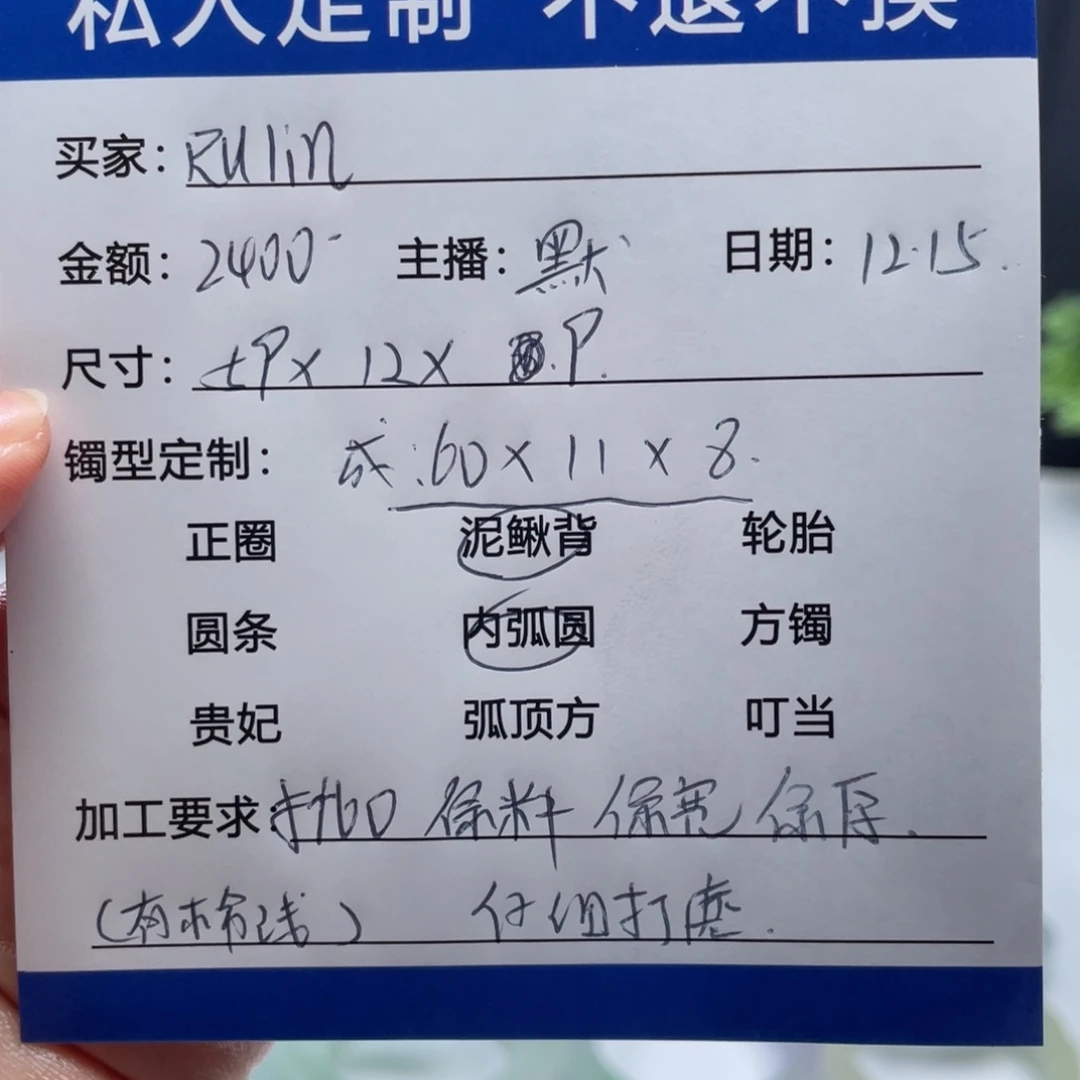 私人定制 不退不换
买家：RUlin
金额：2400- 主播：默 日期：12.15.
尺寸：P× 12× P.
镯型定制： 成:60×11×8.
正圈 泥鳅背 轮胎
圆条 内弧圆 方镯
贵妃 弧顶方 叮当
加工要求： 60 保料 保宽 保厚.
(有棉线) 仔细打磨.